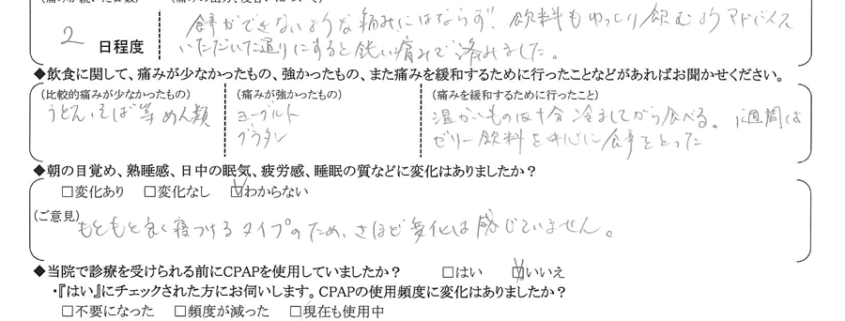 2 日程度
食事ができないような痛みにはならず、飲料もゆっくり飲むようアドバイス
いただいた通りにすると鈍い痛みで済みました。
◆飲食に関して、痛みが少なかったもの、強かったもの、また痛みを緩和するために行ったことなどがあればお聞かせください。
(比較的痛みが少なかったもの) (痛みが強かったもの) (痛みを緩和するために行ったこと)
うどん、そば等めん類 ヨーグルト 温かいものは十分冷ましてから食べる。1週間は
グラタン ゼリー飲料を中心に食事をとった
◆朝の目覚め、熟睡感、日中の眠気、疲労感、睡眠の質などに変化はありましたか？
□変化あり □変化なし ☑わからない
(ご意見) もともと良く寝つけるタイプのため、さほど変化は感じていません。
◆当院で診療を受けられる前にCPAPを使用していましたか？ □はい ☑いいえ
・『はい』にチェックされた方にお伺いします。CPAPの使用頻度に変化はありましたか？
□不要になった □頻度が減った □現在も使用中